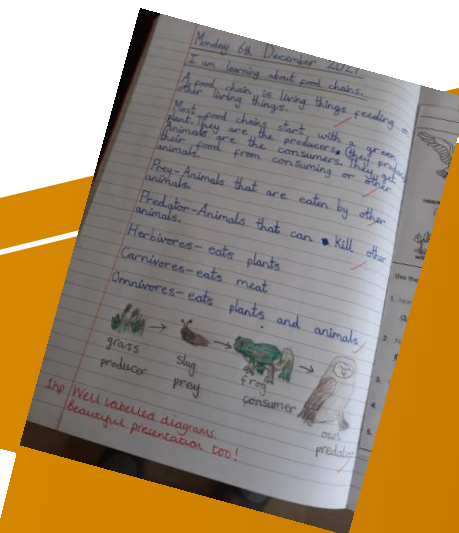 Monday 6th December 2021
I am learning about food chains.
A food chain is living things feeding on
other living things.
Most food chains start with a green
plant. They are the producers. (they produce
Animals are the consumers. They get
their food from consuming or other
animals.
Prey-Animals that are eaten by other
animals.
Predator-Animals that can kill other
animals.
Herbivores- eats plants
Carnivores-eats meat
Omnivores-eats plants and animals
grass
producer
slug
prey
frog
consumer
owl
predator
1hp Well labelled diagrams.
Beautiful presentation too!
Use the
1.
2.
3.
4.
5.